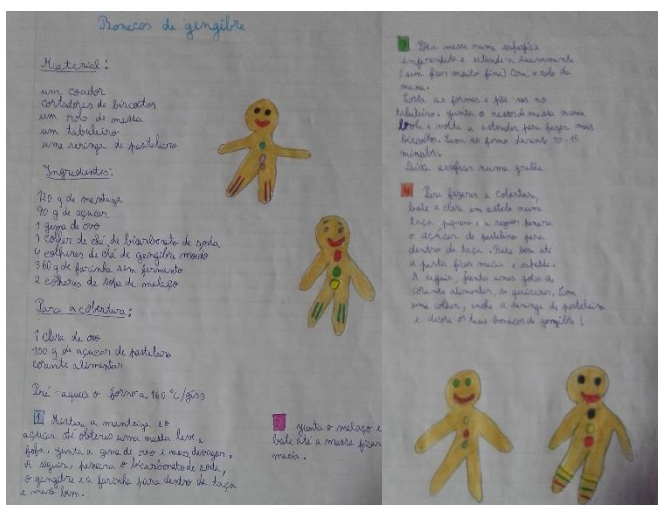 Bonecos de gengibre
Material:
um coador
cortadores de biscoitos
um rolo de massa
um tabuleiro
uma seringa de pasteleiro
Ingredientes:
120 g de manteiga
90 g de açucar
1 gema de ovo
1 colher de chá de bicarbonato de soda
4 colheres de chá de gengibre moido
360 g de farinha sem fermento
2 colheres de sopa de melaço
Para a cobertura:
1 clara de ovo
100 g de açucar de pasteleiro
corante alimentar
Pré-aquece o forno a 160 °C/gás3
1 Mistura a manteiga e o
açucar até obteres uma massa leve e
fofa. Junta a gema de ovo e mexe devagar.
A seguir, peneira o bicarbonato de soda,
o gengibre e a farinha para dentro da taça
e mexe bem.
2 Junta o melaço e
bate até a massa ficar
macia.
3 Põe a massa numa superfície
enfarinhada e estende-a suavemente
(sem ficar muito fina) com o rolo da
massa.
Corta as formas e põe-nas no
tabuleiro. Junta o resto da massa numa
bola e volta a estender, para fazer mais
biscoitos. Leva ao forno durante 10-15
minutos.
Deixa arrefecer numa grelha.
4 Para fazeres a cobertura,
bate a clara em castelo numa
taça pequena e a seguir peneira
o açucar de pasteleiro para
dentro da taça. Bate bem até
a pasta ficar macia e espessa.
A seguir, junta umas gotas de
corante alimentar, se quiseres. Com
uma colher, enche a seringa de pasteleiro
e decora os teus bonecos de gengibre!